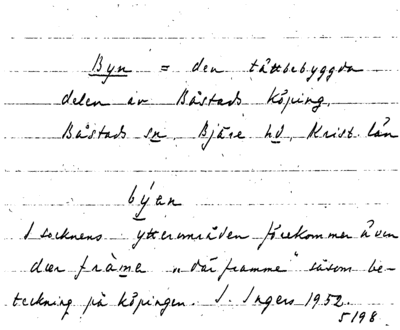 Byn = den tättbebyggda
delen av Båstads köping.
Båstads sn, Bjäre hd, Krist. län
býən
I socknens ytterområden förekommer även
dær fràmə "där framme" såsom be-
teckning på köpingen. I. Ingers 1952.
5198